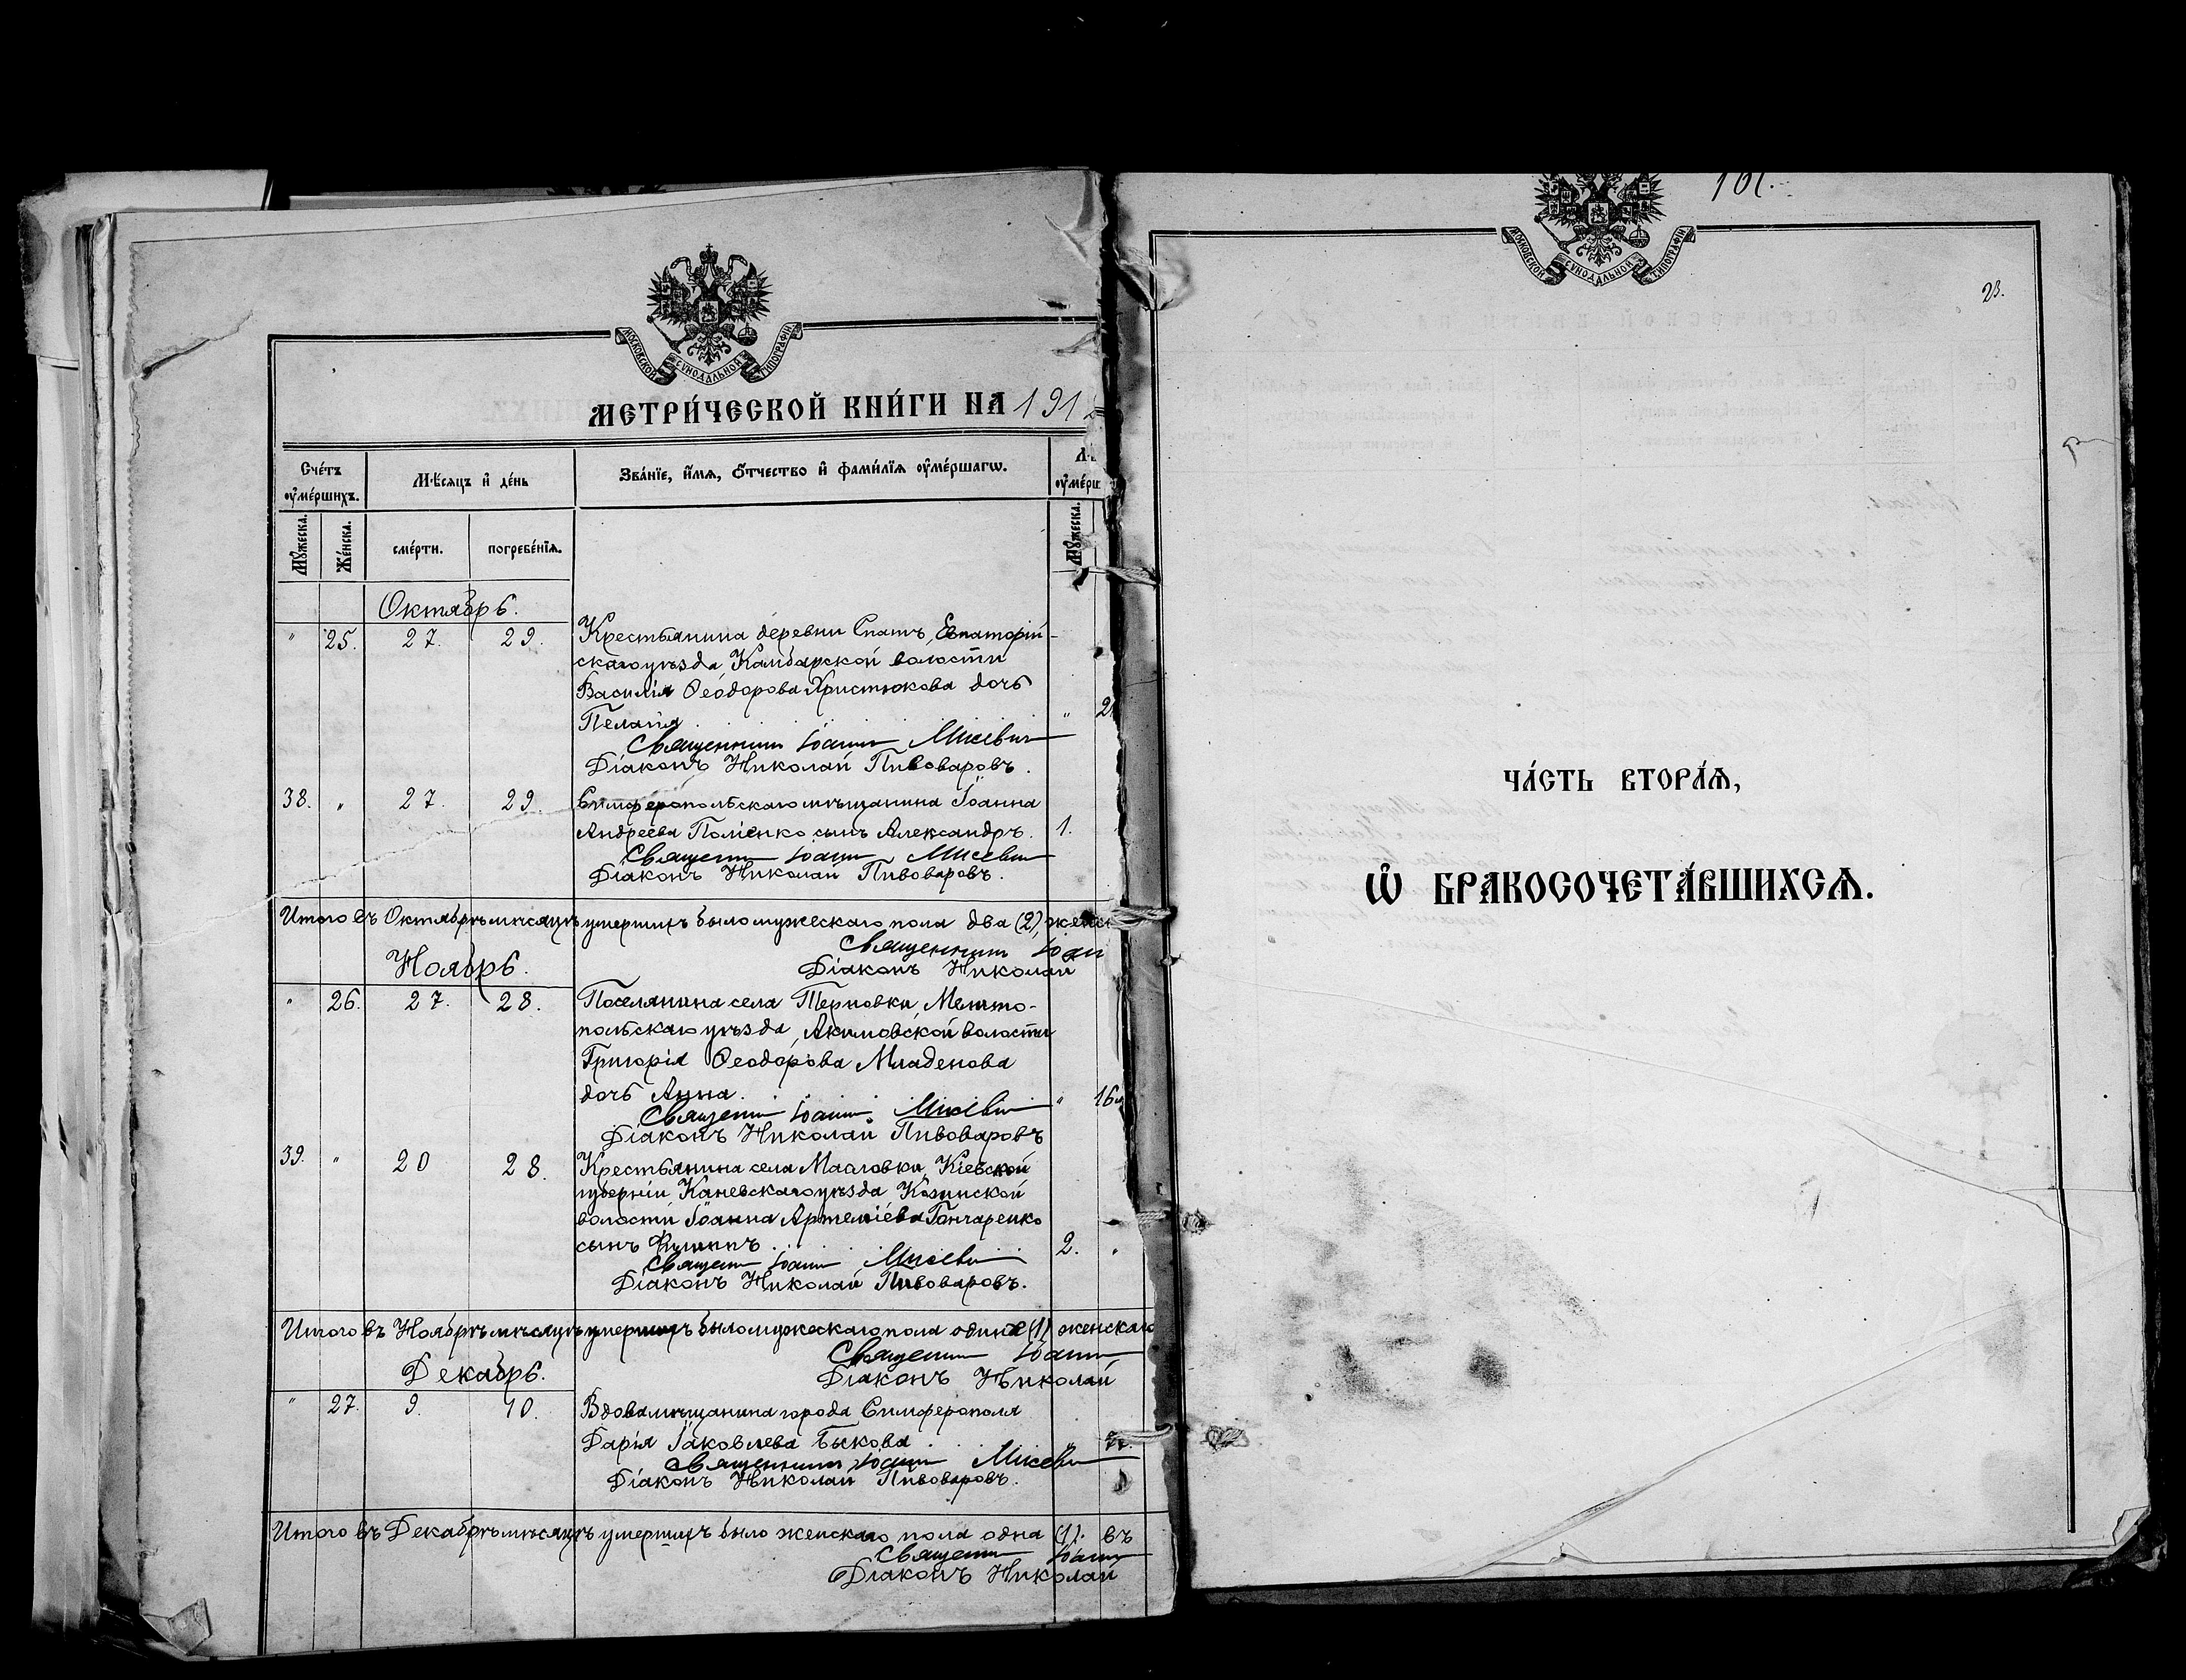 МОСКОВСКОЙ СѴНОДАЛЬНОЙ ТИПОГРАФІИ
МЕТРИ́ЧЕСКОЙ КНИ́ГИ НА 191
Сче́тъ ᲂу҆ме́ршихъ.
Мѣ́сяцъ и҆ де́нь
Зва́нїе, и҆́мѧ, ѻ҆́тчество и҆ фами́лїѧ ᲂу҆ме́ршагѡ.
ᲂу҆ме́рш
Мꙋ́жеска.
Же́нска.
сме́рти.
погребе́нїѧ.
Мꙋ́жеска.
Октябрь.
" 25. 27. 29. Крестьянина деревни Спатъ, Евпаторій-
скаго уѣзда Камбарской волости
Василія Ѳеодорова Христюкова дочь
Пелагія . . . . . . "
Священникъ Іоаннъ Мисевич
Діаконъ Николай Пивоваровъ.
38. " 27. 29. Симферопольскаго мѣщанина Іоанна
Андреева Поліенко сынъ Александръ. 1.
Священникъ Іоаннъ Мисевич
Діаконъ Николай Пивоваровъ.
Итого въ Октябрѣ мѣсяцѣ умершихъ было мужескаго пола два (2), женск
Священникъ Іоан
Діаконъ Николай
Ноябрь.
" 26. 27. 28. Поселянина села Терновки, Мелито-
польскаго уѣзда, Акимовской волости
Григорія Ѳеодорова Младенова
дочь Анна. " 16
Священникъ Іоаннъ Мисевич
Діаконъ Николай Пивоваровъ
39. " 20 28. Крестьянина села Масловки, Кіевской
губерніи Каневскаго уѣзда Козинской
волости Іоанна Артеміева Гончаренко
сынъ Филиппъ . . . . . 2. "
Священникъ Іоаннъ Мисевич
Діаконъ Николай Пивоваровъ.
Итого въ Ноябрѣ мѣсяцѣ умершихъ было мужескаго пола одинъ (1) женскаго
Священникъ Іоаннъ
Діаконъ Николай
Декабрь.
" 27. 9. 10. Вдова мѣщанина города Симферополя
Дарія Іаковлева Быкова . . . "
Священникъ Іоаннъ Мисевич
Діаконъ Николай Пивоваровъ.
Итого въ Декабрѣ мѣсяцѣ умершихъ было женскаго пола одна (1). въ
Священникъ Іоаннъ
Діаконъ Николай
МОСКОВСКОЙ СѴНОДАЛЬНОЙ ТИПОГРАФІИ
23.
ЧА́СТЬ ВТОРА́Ѧ,
Ѡ҆ БРАКОСОЧЕТА́ВШИХСѦ.